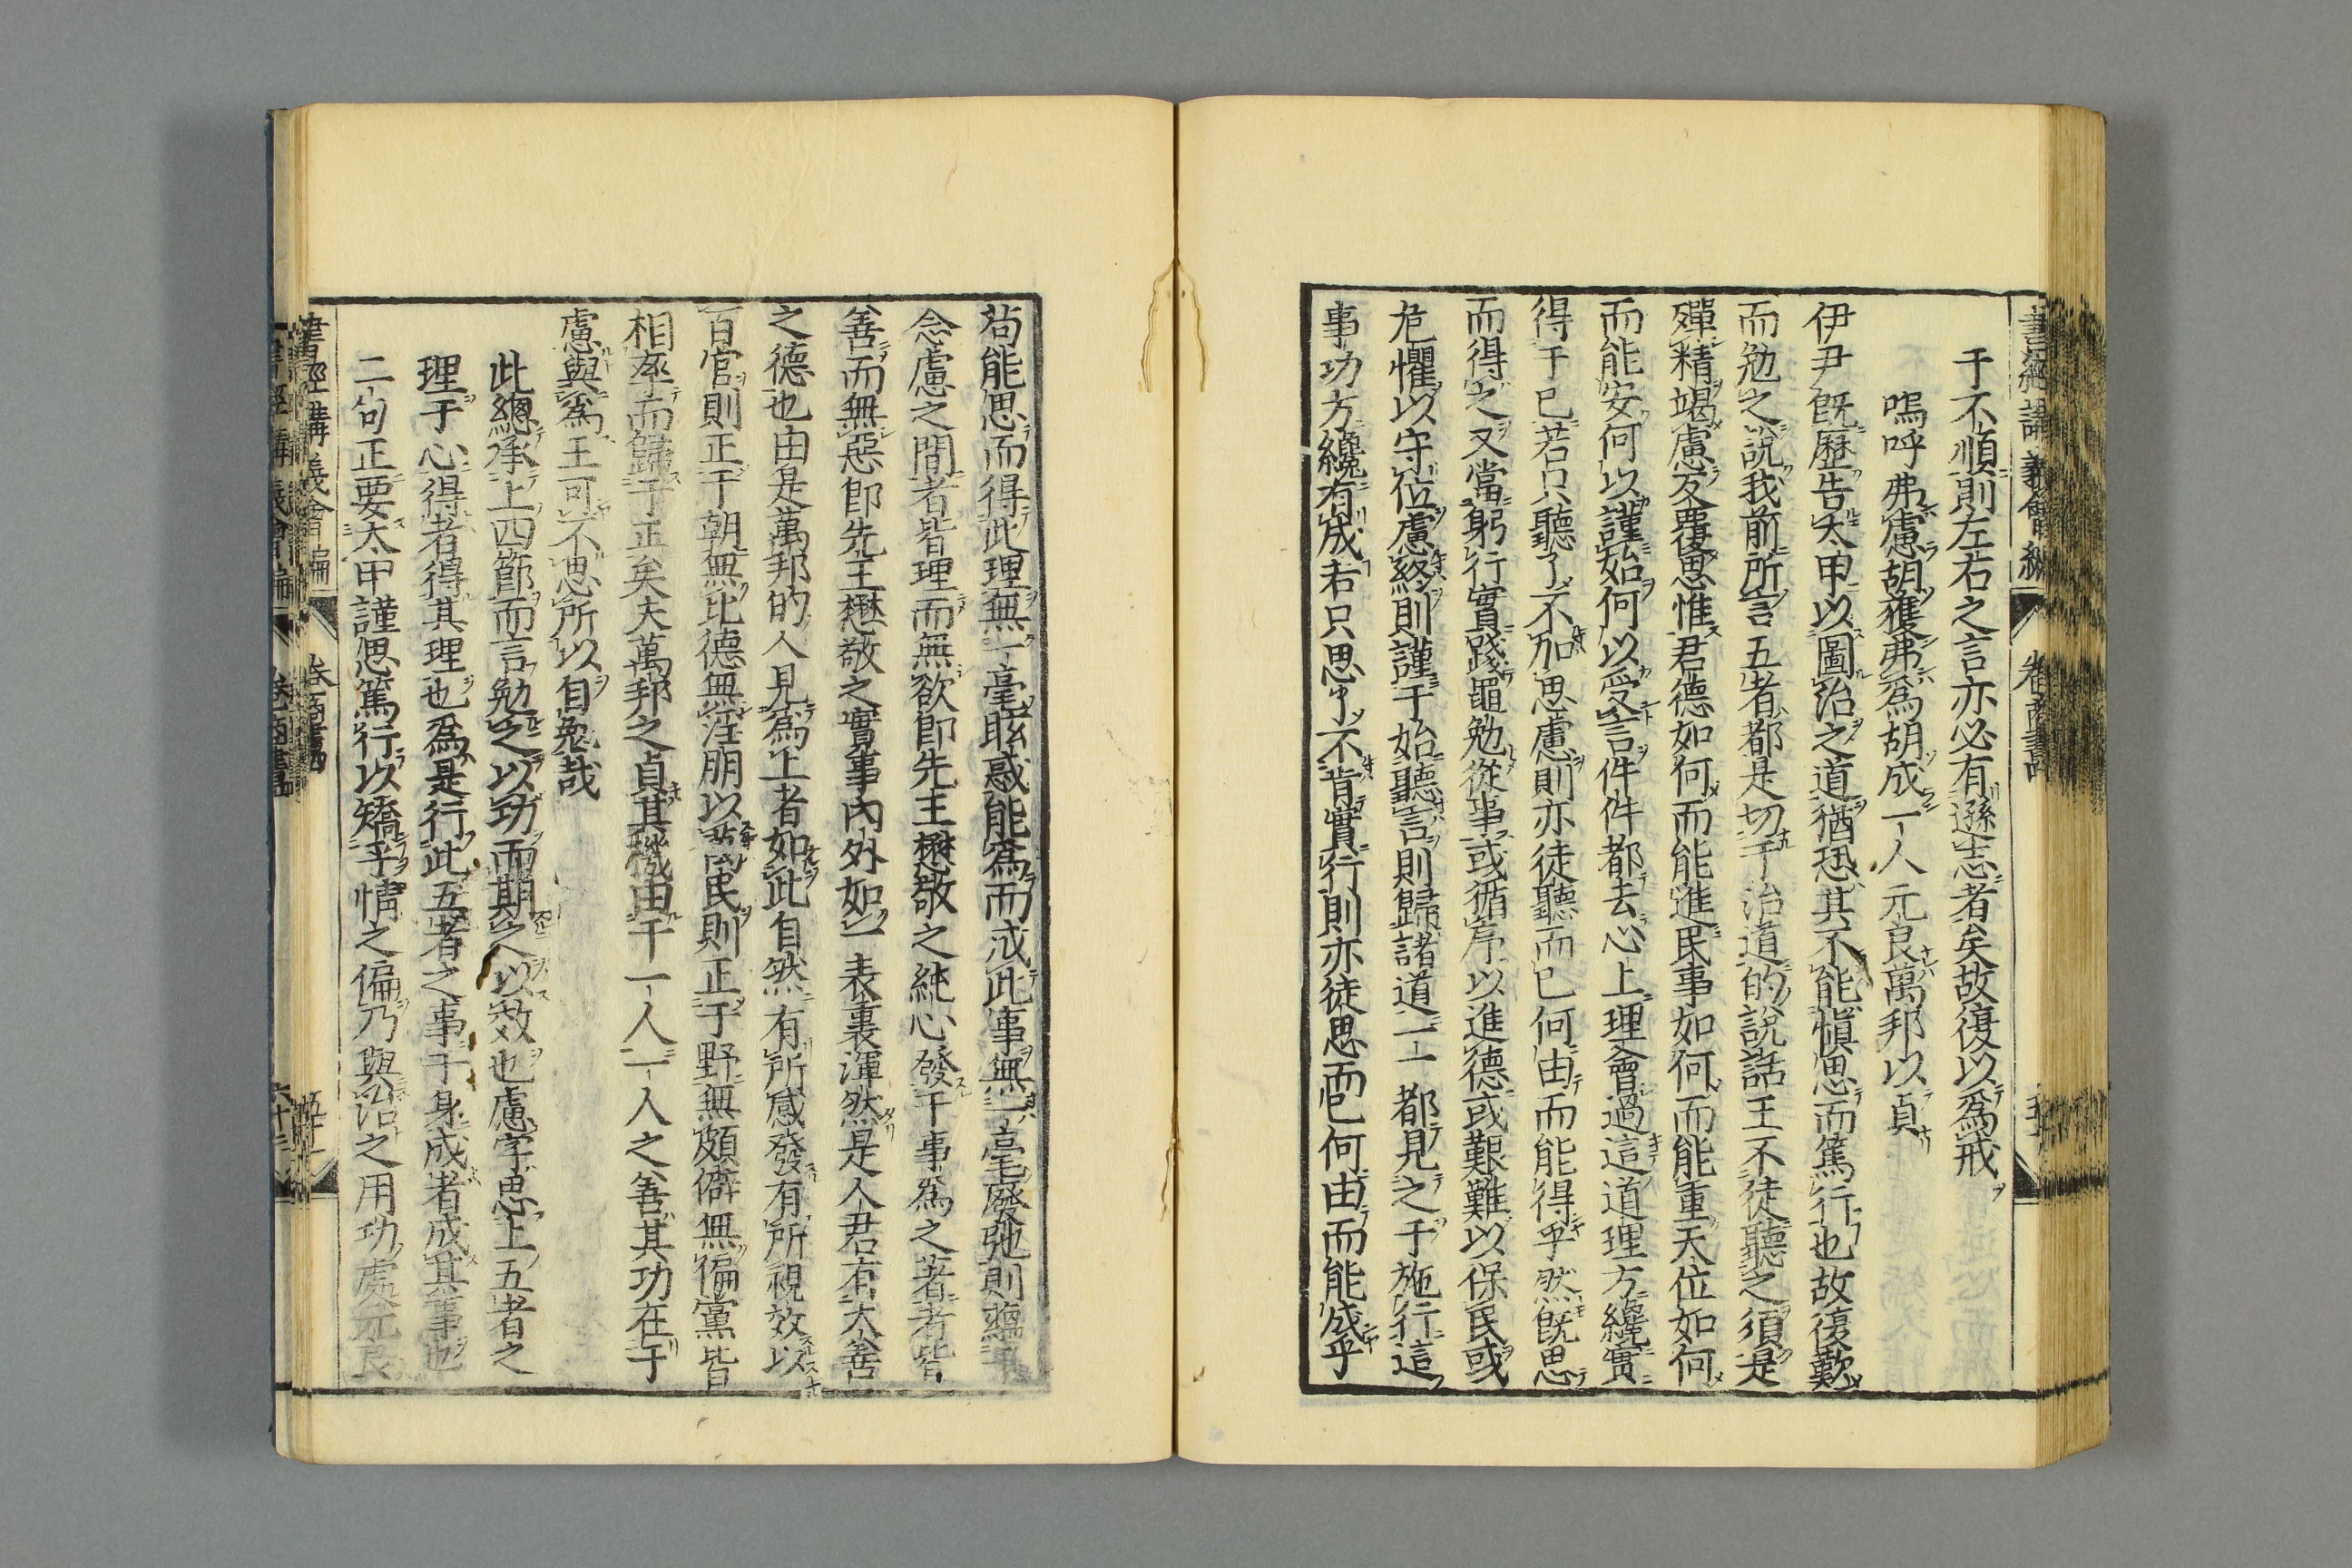 于不順則左右之言亦必有遜志者矣故復以爲戒
嗚呼弗慮胡獲弗爲胡成一人元良萬邦以貞
伊尹既歷告太甲以圖治之道猶恐其不能愼思而篤行也故復歎
而勉之說我前所言五者都是切于治道的說話王不徒聽之須是
殫精竭慮反覆思惟君德如何而能進民事如何而能重天位如何
而能安何以謹始何以受言件件都去心上理會過這道理方纔實
得于已若只聽了不加思慮則亦徒聽而已何由而能得乎然既思
而得之又當躬行實踐黽勉從事或循序以進德或艱難以保民或
危懼以守位慮終則謹于始聽言則歸諸道一一都見之于施行這
事功方纔有成若只思了不肯實行則亦徒思而已何由而能成乎
苟能思而得此理無一毫眩惑能爲而成此事無一毫廢弛則蘊
念慮之間者皆理而無欲卽先王懋敬之純心發于事爲之著者皆
善而無惡卽先王懋敬之實事內外如一表裏渾然是人君有大善
之德也由是萬邦的人見爲上者如此自然有所感發有所視效以
百官則正于朝無比德無淫朋以萬民則正于野無頗僻無偏黨皆
相率而歸于正矣夫萬邦之貞其機由于一人一人之善其功在于
慮與爲王可不思所以自勉哉
此總承上四節而言勉之以功而期之以效也慮字思上五者之
理于心得者得其理也爲是行此五者之事于身成者成其事也
二句正要太甲謹思篤行以矯乎情之偏乃與治之用功處元良
書經講義會編
卷商書四